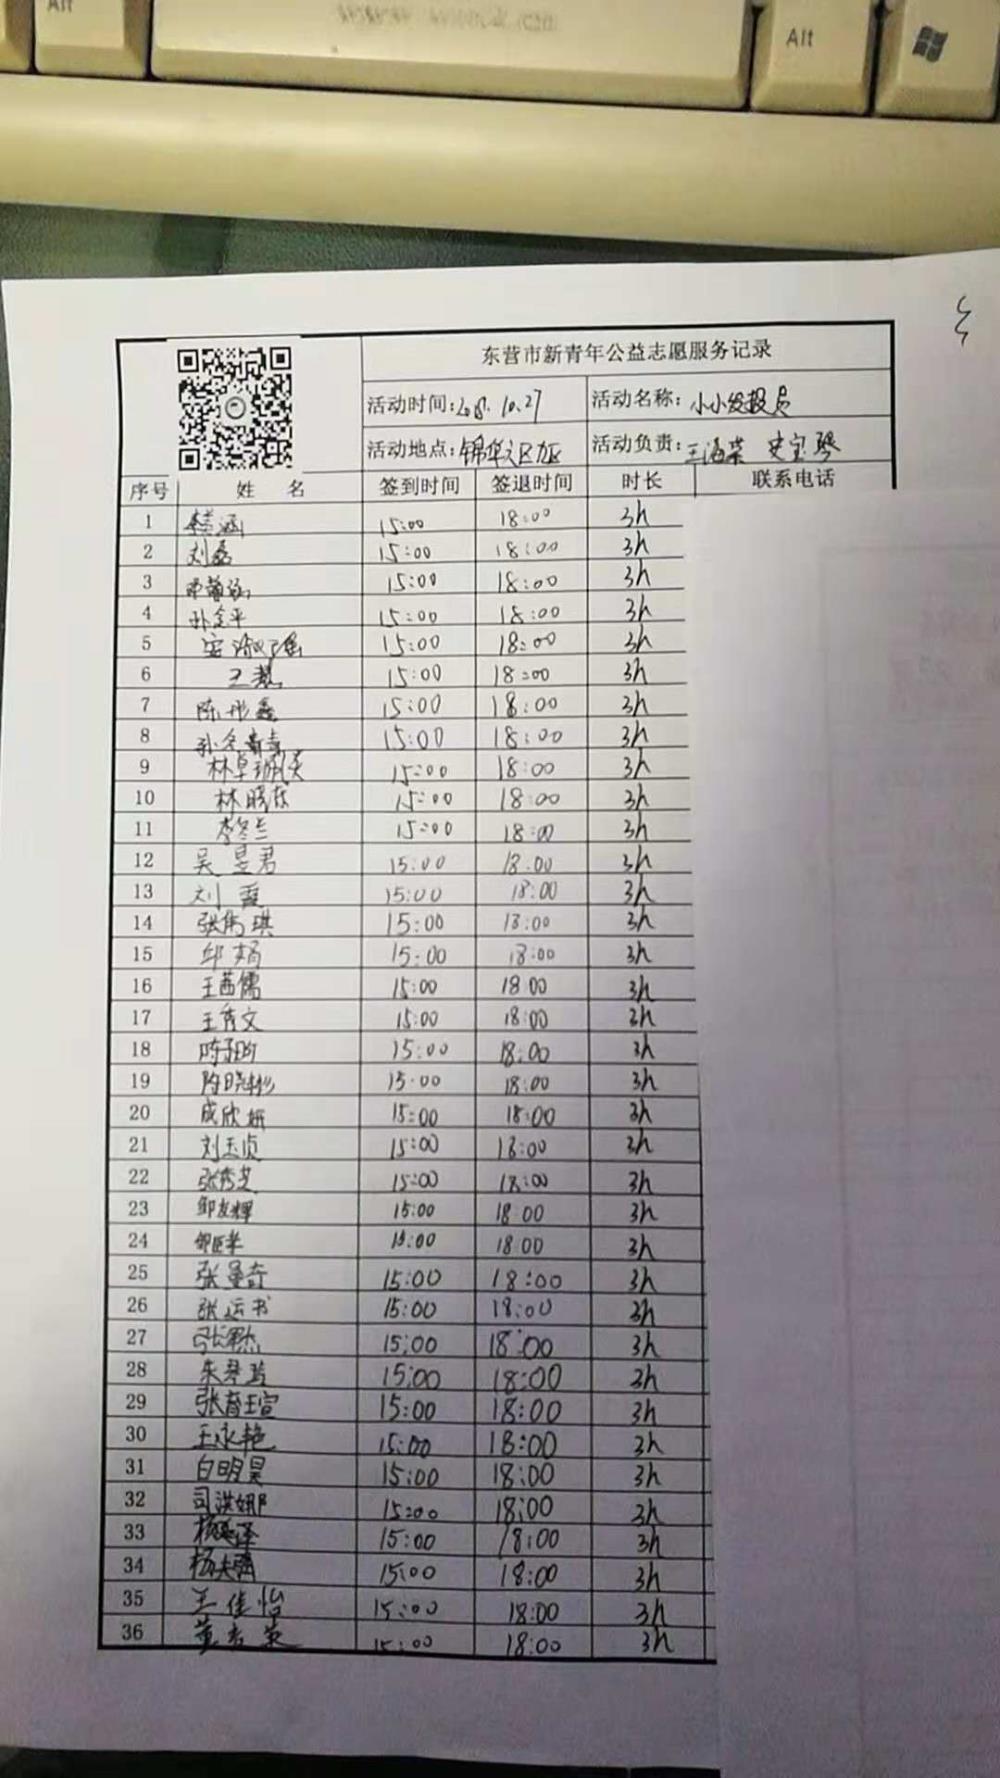 Alt
Alt
东营市新青年公益志愿服务记录
活动时间: 10.27
活动名称: 小小投员
活动地点: 锦华
活动负责: 王海荣 史宝琴
序号 姓 名 签到时间 签退时间 时长 联系电话
1 李 涵 15:00 18:00 3h
2 刘磊 15:00 18:00 3h
3 15:00 18:00 3h
4 孙金平 15:00 18:00 3h
5 安 瑶 15:00 18:00 3h
6 王慧 15:00 18:00 3h
7 陈彤鑫 15:00 18:00 3h
8 孙 15:00 18:00 3h
9 林卓 15:00 18:00 3h
10 林晓东 15:00 18:00 3h
11 李冬兰 15:00 18:00 3h
12 吴昱君 15:00 18:00 3h
13 刘霞 15:00 18:00 3h
14 张伟琪 15:00 18:00 3h
15 邱娟 15:00 18:00 3h
16 王茜儒 15:00 18:00 3h
17 王秀文 15:00 18:00 3h
18 陈昀 15:00 18:00 3h
19 陈晓彬 15:00 18:00 3h
20 成欣妍 15:00 18:00 3h
21 刘玉贞 15:00 18:00 3h
22 张秀芝 15:00 18:00 3h
23 邹友辉 15:00 18:00 3h
24 邹 15:00 18:00 3h
25 张曼奇 15:00 18:00 3h
26 张运书 15:00 18:00 3h
27 张 15:00 18:00 3h
28 朱 15:00 18:00 3h
29 张育瑄 15:00 18:00 3h
30 王永艳 15:00 18:00 3h
31 白明昊 15:00 18:00 3h
32 司洪娜 15:00 18:00 3h
33 杨 泽 15:00 18:00 3h
34 杨夫 15:00 18:00 3h
35 王佳怡 15:00 18:00 3h
36 董秀英 15:00 18:00 3h